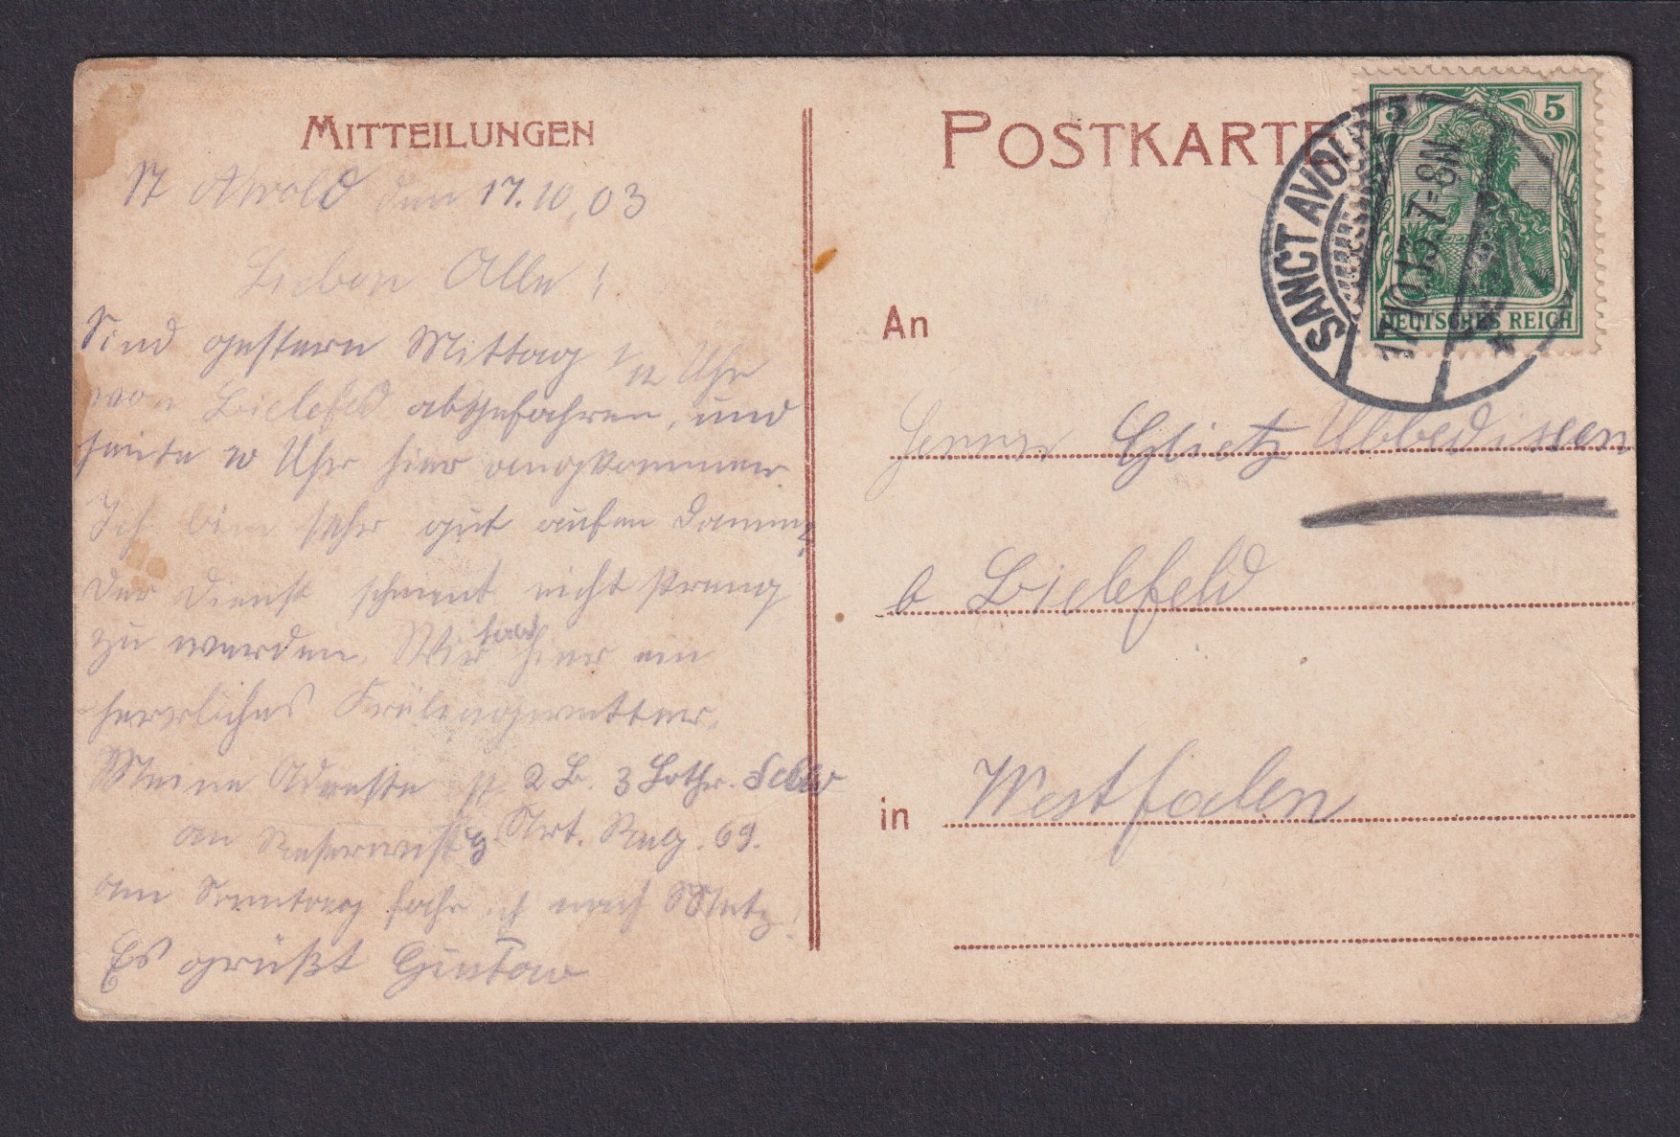 MITTEILUNGEN
St Avold den 17.10.03
Lieben Alle!
Sind gestern Mittag 1/2 Uhr
von Bielefeld abgefahren, und
heute 10 Uhr hier angkommen.
Ich bin sehr gut
der Dienst scheint nicht streng
zu werden. Wir hab hier ein
herrliches Frülingswetter.
Meine Adresse ist 2 B. 3 Lothr. Feld
an Reservist Art. Reg. 69.
am Sonntag fahr ich nach Metz!
Es grüßt Gustav
POSTKARTE
SANCT AVOLD
17.10.13.7-8N
5 5
DEUTSCHES REICH
An
Herrn Ubbedissen
b Bielefeld
in Westfalen